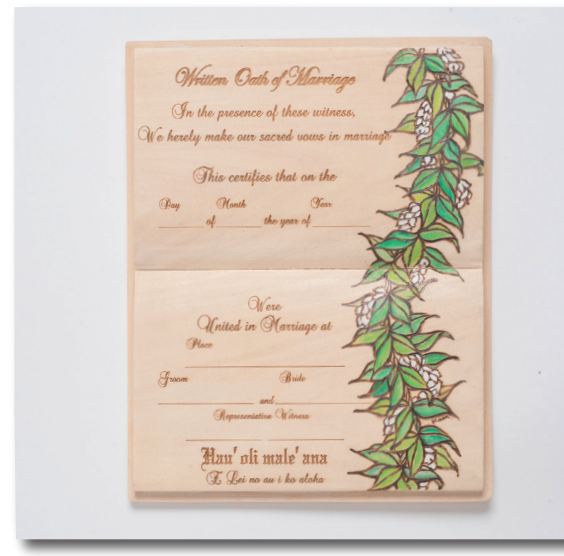 Written Oath of Marriage
In the presence of these witness,
We hereby make our sacred vows in marriage
This certifies that on the
Day Month Year
of the year of
Were
United in Marriage at
Place
Groom Bride
and
Representative Witness
Hau'oli male'ana
E Lei no au i ko aloha